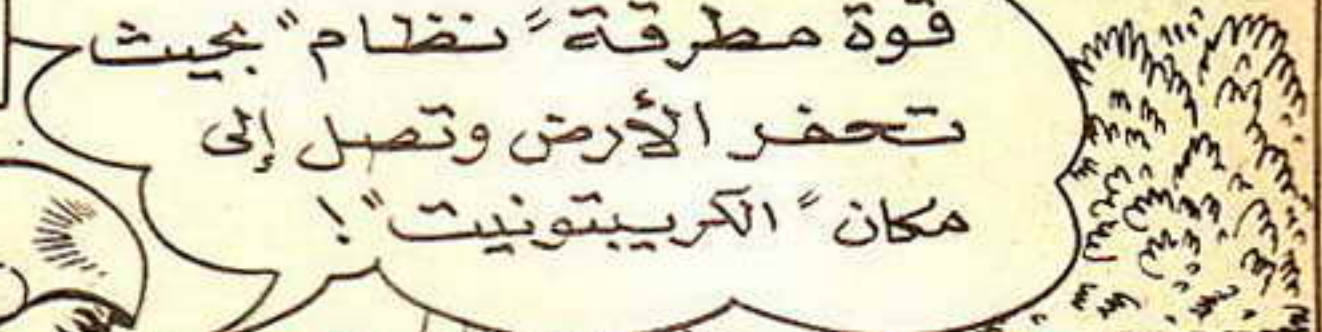 قوة مطرقة "نظام" بحيث
تحفر الأرض وتصل إلى
مكان "الكريبتونيت"!